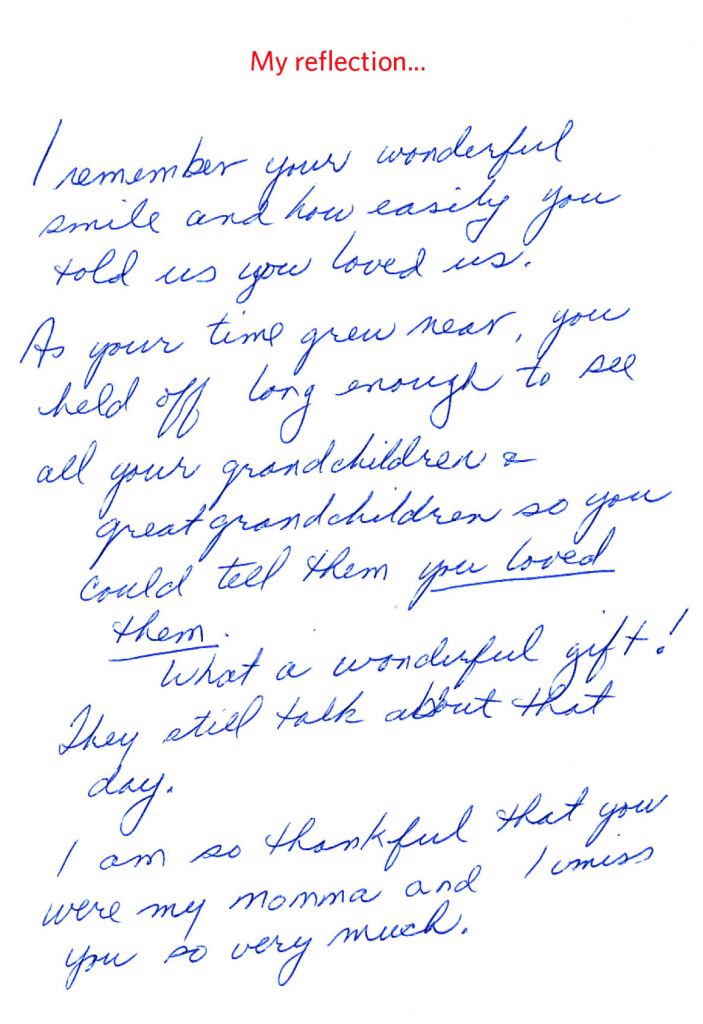 My reflection...
I remember your wonderful
smile and how easily you
told us you loved us.
As your time grew near, you
held off long enough to see
all your grandchildren &
great grandchildren so you
could tell them you loved
them.
What a wonderful gift!
They still talk about that
day.
I am so thankful that you
were my momma and I miss
you so very much.